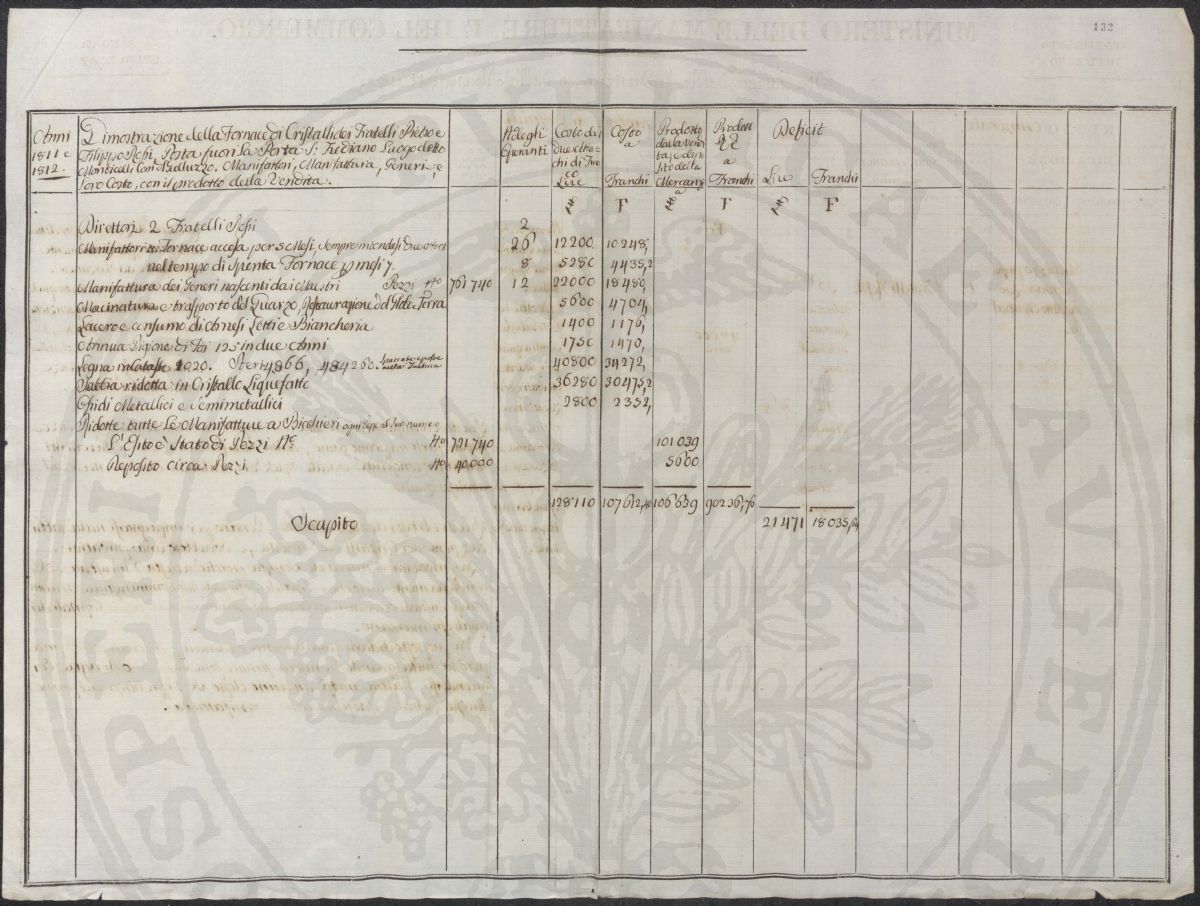 132
Anni 1811 e 1812.
Dimostrazione della Fornace di Cristalli dei Fratelli Pietro e
Filippo Nesi, Posta fuori la Porta S. Frediano Luogo detto
Monticelli Com. Galluzzo. Manifattori, Manifattura, Generi, e
loro Costo, con il prodotto della Vendita.
Adeghi Operanti
Costo dei due
Lire
Costo a Franchi
Prodotto dalla Vendita, e deposito della Mercanzia
Prodotto a Franchi
Deficit
Lire Franchi
F F F
Direttori 2 Fratelli Nesi 2
Manifattori a Fornace accesa per 5 Mesi, sempre intendesi due 26 12200 10248,
nel tempo di Spenta Fornace p mesi 7 8 5280 4435,2
Manifattura dei Generi nascenti dai Maestri Pezzi No 761740 12 22000 18480,
Macinatura e trasporto del Quarzo, Restaurazione d Terra 5600 4704,
Lacero e consumo di Arnesi Letti e Biancheria 1400 1176,
Annua Pigione di 125 in due Anni 1750 1470,
Legna in Cataste 1020. Steri 4866, 484260. 40800 34272,
Sabbia ridotta in Cristallo Liquefatto 36280 30475,2
Ossidi Metallici e Semimetallici 2800 2352,
Ridotte tutte Le Manifatture a Bicchieri ogni al suo numero
L'Esito è Stato di Pezzi No. No 721740 101039
Deposito circa Pezzi No 40,000 5600
128110 107612,40 106639 90236,76
Scapito 21471 18035,64